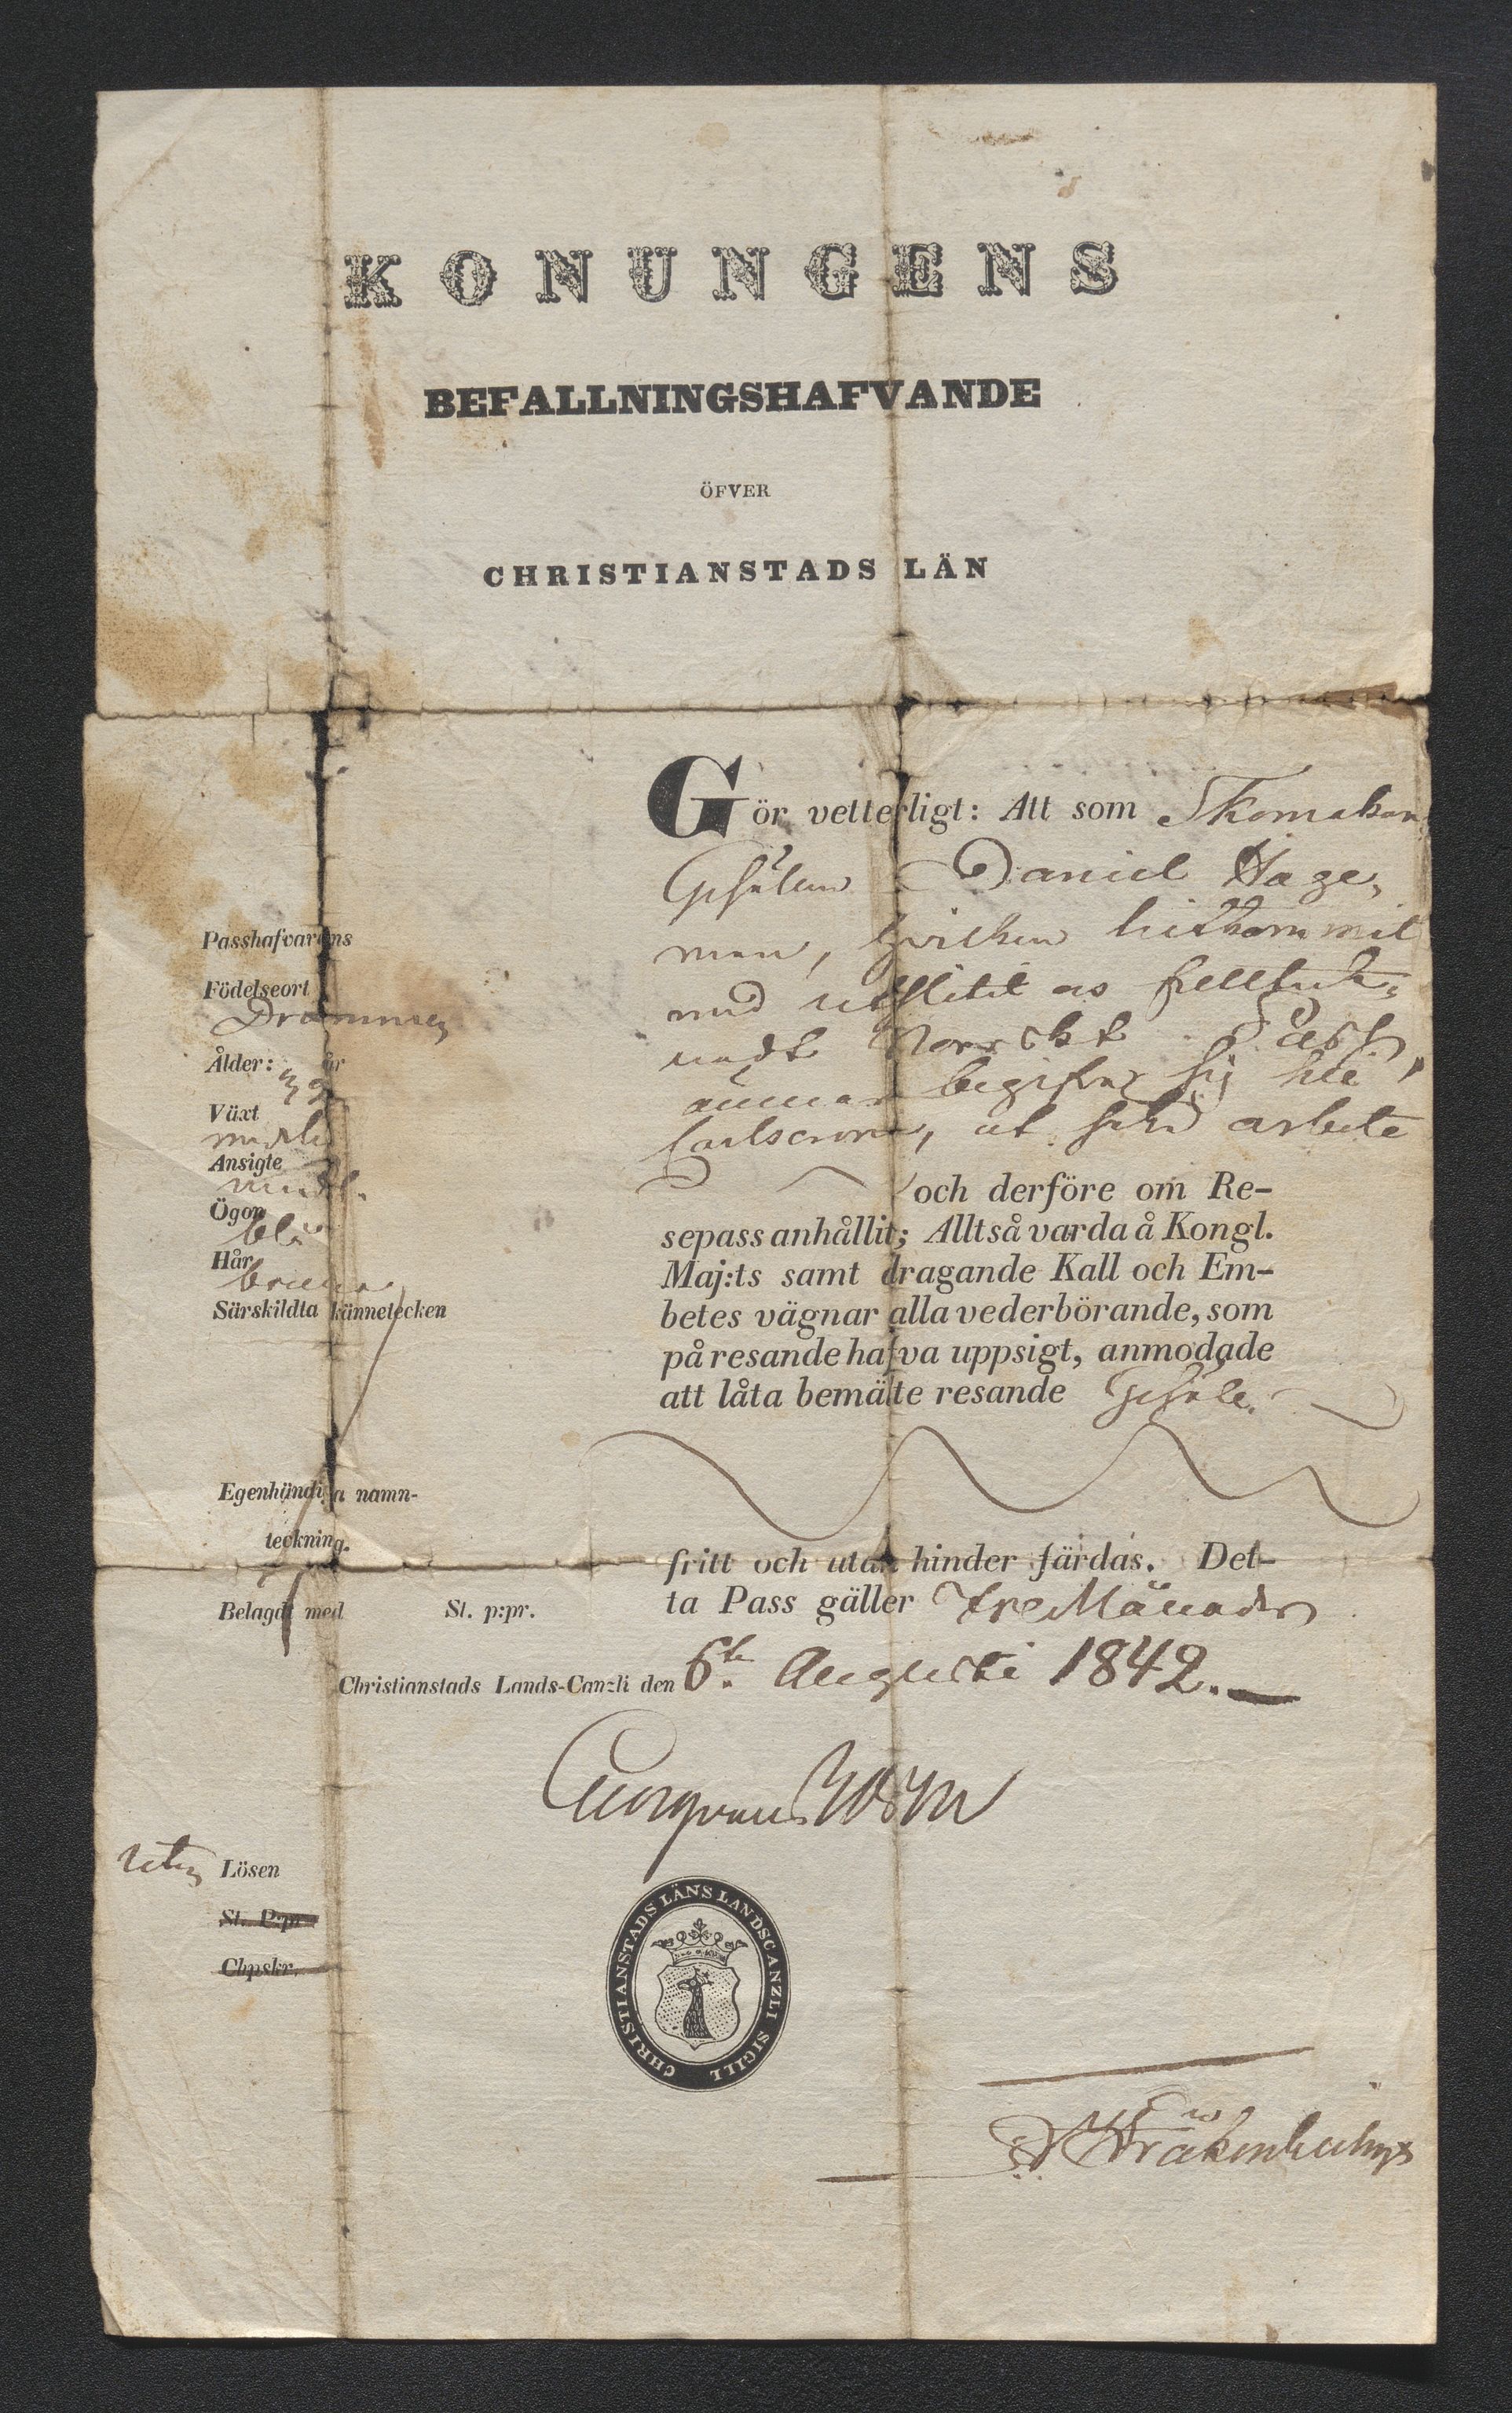 KONUNGENS
BEFALLNINGSHAFVANDE
ÖFVER
CHRISTIANSTADS LÄN
Gör vetterligt: Att som Skomakare
Gesällen Daniel Hage,
man, hvilken hitkommit
med utslitit
undt Norrskt Pass,
ämnar begifva sig till
Carlscrona, at söka arbete
och derföre om Re-
sepass anhållit; Alltså varda å Kongl.
Maj:ts samt dragande Kall och Em-
betes vägnar alla vederbörande, som
på resande hafva uppsigt, anmodade
att låta bemälte resande Gesäll
fritt och utan hinder färdas. Det-
ta Pass gäller Tre Månader
Passhafvarens
Födelseort
Drammen
Ålder: år
Växt
medel
Ansigte
Ögon
blå
Hår
bruna
Särskildta kännetecken
Egenhändiga namn-
teckning.
Belagdt med St. p:pr.
Christianstads Lands-Canzli den 6te Augusti 1842.
utan Lösen
St. P:pr
Chpskr.
CHRISTIANSTADS LÄNS LANDSCANZLI SIGILL